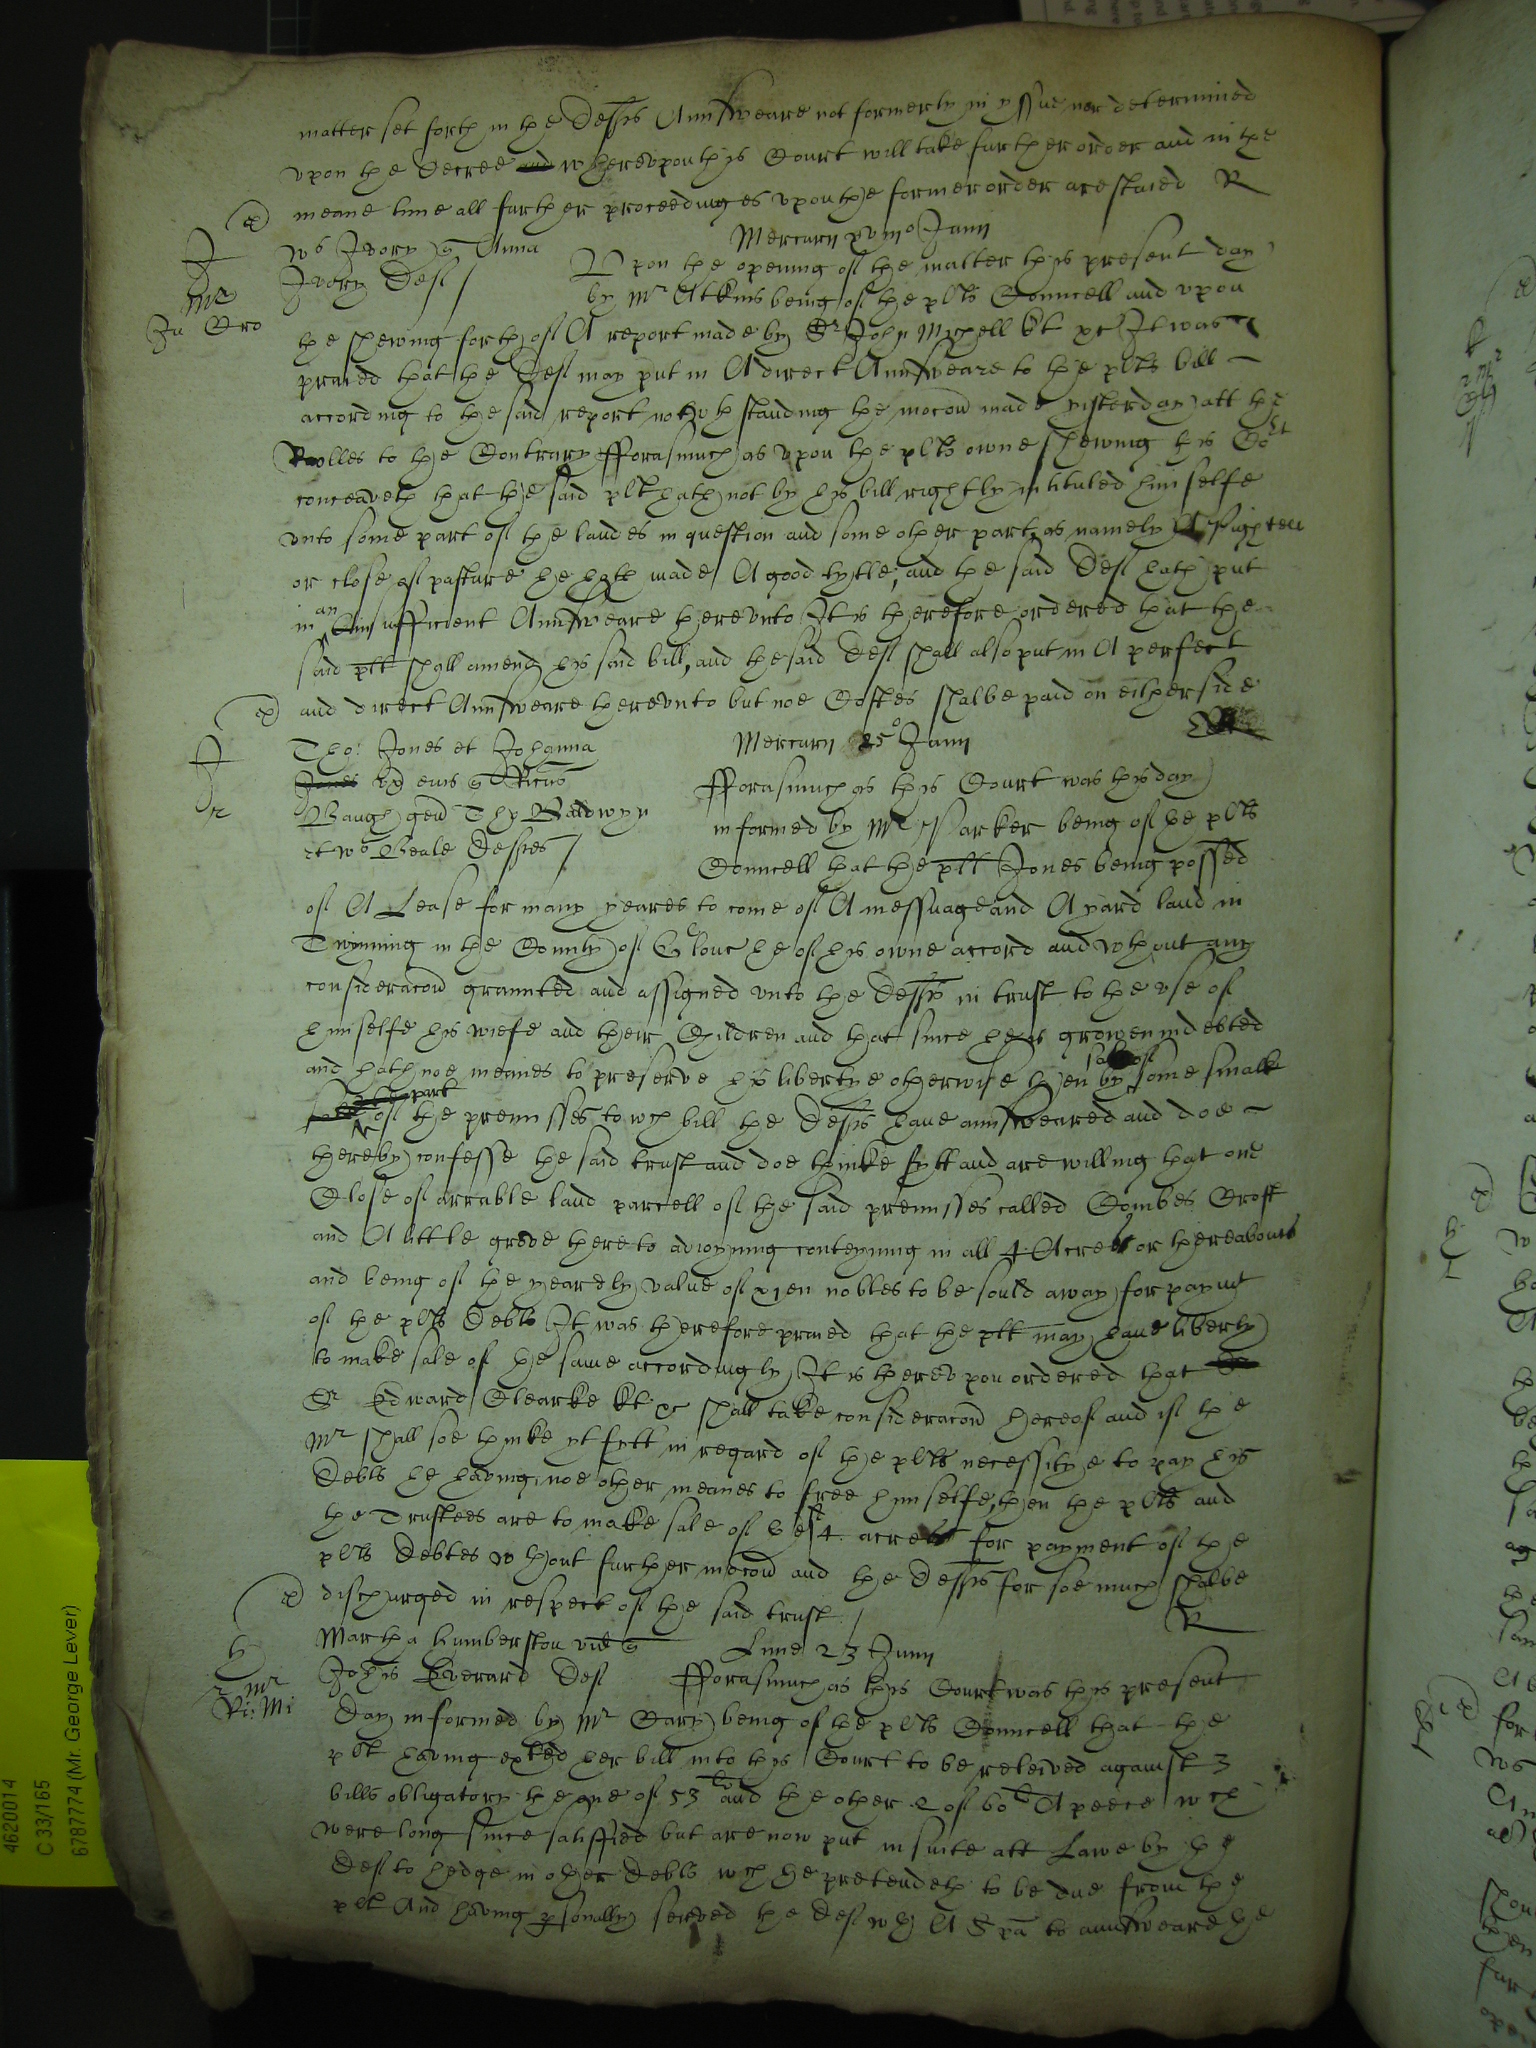 matter set forth in the Defts Aunsweare not formerly in yssue nor determined
upon the Decree and wherevpon this Court will take further order and in the
meane time all further proceedinges vpon the former order are staied R
Mercurii xviijo Junii
Wm Ivory q Anna
Ivory Def
Vpon the opening of the matter this present day
by Mr Atkins being of the plts Councell and vpon
the shewing forth of A report made by Sr John Mychell kt xc It was
praied that the Def may put in A direct Aunsweare to the plts bill
according to the said report notwthstanding the mocon made yisterday att the
Rolles to the Contrary fforasmuch as vpon the plts owne shewing this Cort
conceaveth that the said plt hath not by his bill rightly intituled himselfe
vnto some part of the landes in question and some other part, as namely A
or close of pasture he hath made A good tytle, and the said Def hath put
in an insufficient Aunsweare therevnto It is therefore ordered that the
said plt shall amend his said bill, and the said Def shall also put in A perfect
and direct Aunsweare therevnto but noe Costes shalbe paid on either side
Mercurii 25o Junii
Tho: Jones et Johanna
Jones vx eius q Ricus
Baugh gen Tho Baldwyn
et Wm Beale Deftes
fforasmuch as this Court was this day
informed by Mr Parker being of the plts
Councell that the plt Jones being possed
of A Lease for many yeares to come of A messuage and A yard land in
Twynning in the County of Glouc he of his owne accord and wthout any
consideracon graunted and assigned vnto the Defts in trust to the vse of
himselfe his wiefe and their Children and that since he is growen indebted
and hath noe meanes to preserve his libertye otherwise then by sale of some small
part of the premisses to wch bill the Defts haue aunsweared and doe
thereby confesse the said trust and doe thinke fytt and are willing that one
Close of arrable land parcell of the said premisses called Combes Croft
and A little greve thereto adioyning conteyning in all 4 Acres or thereabouts
and being of the yearely value of xien nobles to be sould away for paymt
of the plts Debts It was therefore praied that the plt may haue liberty
to make sale of the same accordingly It is therevpon ordered that
Sr Edward Clearke kt xc shall take consideracon thereof and if the
Mr shall soe thinke yt fytt in regard of the plts necessitye to pay his
Debts he having noe other meanes to free himselfe, then the plts and
the Trustees are to make sale of the 4 acres for payment of the
plts Debtes wthout further mocon and the Defts for soe much shalbe
discharged in respect of the said trust R
Martha Humberston vid q
Lune 23 Junii
Johis Everard Def
fforasmuch as this Court was this present
Day informed by Mr Cary being of the plts Councell that the
plt having exted her bill into this Court to be releived against 3
bills obligatory the one of 53li and the other 2 of 60li A peece wch
were long since satisfied but are now put in suite att Lawe by the
Def to hedge in other Debts wch he pretendeth to be due from the
plt And having psonally served the Def wth A Spa to aunsweare the
4620014
C 33/165
6787774 (Mr. George Lever)